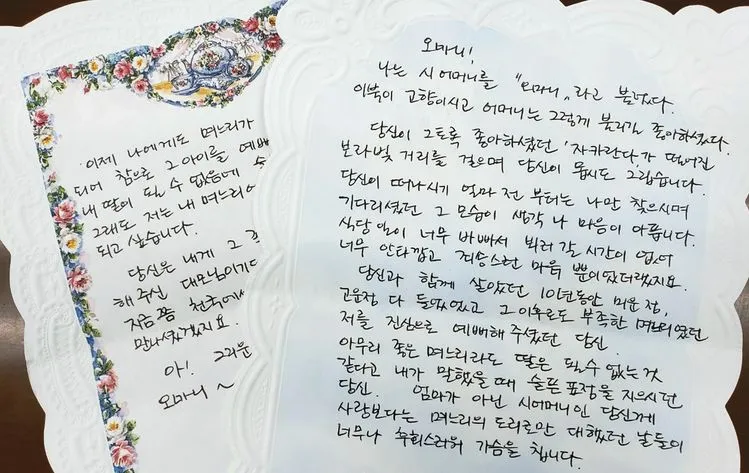 오마니!
나는 시어머니를 "오마니" 라고 불렀다.
이북이 고향이시고 어머니는 그렇게 불리길 좋아하셨다.
당신이 그토록 좋아하셨던 '자카란다'가 떨어진
보라빛 거리를 걸으며 당신이 몹시도 그립습니다.
당신이 떠나시기 얼마 전 부터는 나만 찾으시며
기다리셨던 그 모습이 생각 나 마음이 아픕니다.
식당 일이 너무 바빠서 빨리 갈 시간이 없어
너무 안타깝고 죄송스런 마음 뿐이었더랬지요.
당신과 함께 살았던 10년동안 미운 정,
고운정 다 들었었고 그 이후로도 부족한 며느리였던
저를 진심으로 예뻐해 주셨던 당신.
아무리 좋은 며느리라도 딸은 될 수 없는 것
같다고 내가 말했을 때 슬픈 표정을 지으시던
당신. 엄마가 아닌 시어머니인 당신께
사랑보다는 며느리의 도리로만 대했던 날들이
너무나 후회스러워 가슴을 칩니다.
이제 나에게도 며느리가
되어 참으로 그 아이를 예뻐
내 딸이 될 수 없음에
그래도 저는 내 며느리에
되고 싶습니다.
당신은 내게 그
해 주신 대모님이기도
지금쯤 천국에서
만나셨겠지요.
아! 그리운
오마니~